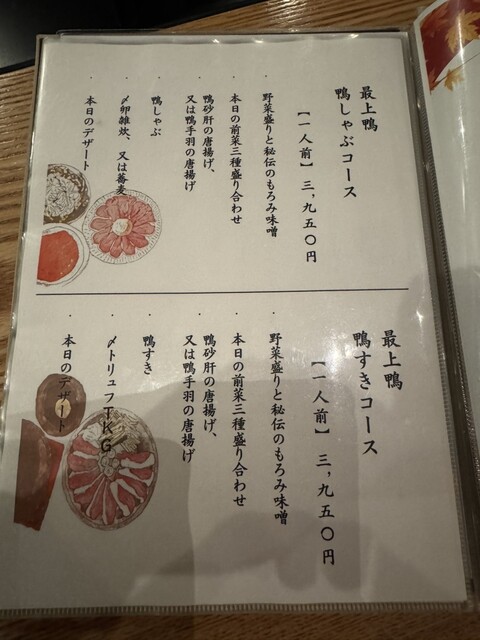 最上鴨
鴨しゃぶコース
【一人前】三,九五〇円
・野菜盛りと秘伝のもろみ味噌
・本日の前菜三種盛り合わせ
・鴨砂肝の唐揚げ、
又は鴨手羽の唐揚げ
・鴨しゃぶ
・〆卵雑炊、又は蕎麦
・本日のデザート
最上鴨
鴨すきコース
【一人前】三,九五〇円
・野菜盛りと秘伝のもろみ味噌
・本日の前菜三種盛り合わせ
・鴨砂肝の唐揚げ、
又は鴨手羽の唐揚げ
・鴨すき
・〆トリュフTKG
・本日のデザート